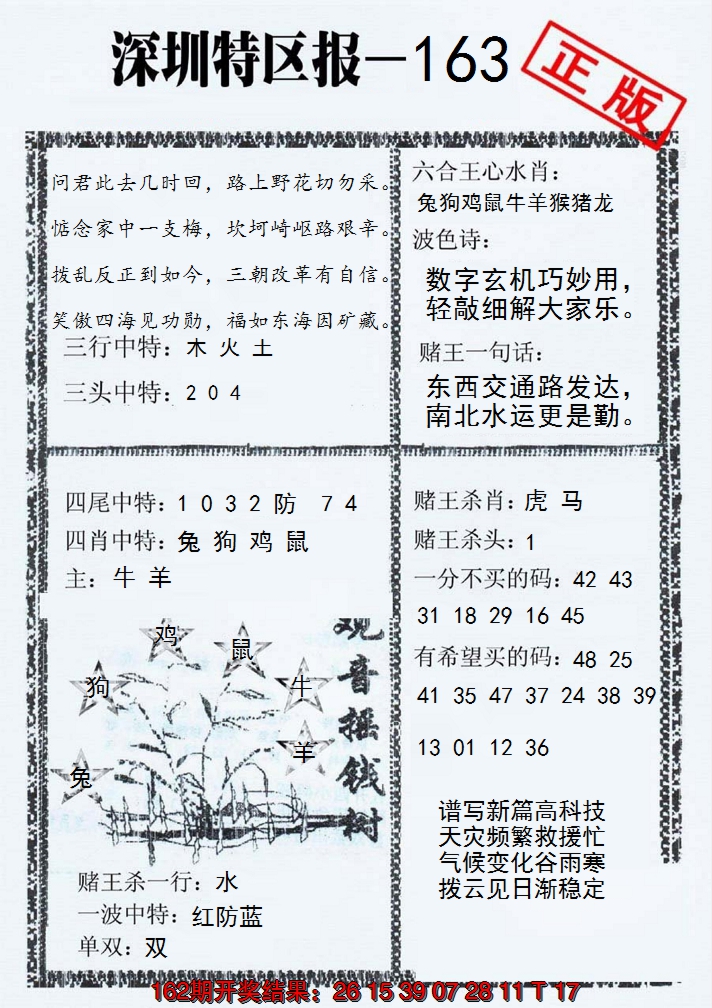 深圳特区报—163
正版
问君此去几时回，路上野花切勿采。
惦念家中一支梅，坎坷崎岖路艰辛。
拨乱反正到如今，三朝改革有自信。
笑傲四海见功勋，福如东海因矿藏。
三行中特：木 火 土
三头中特：2 0 4
六合王心水肖：
兔狗鸡鼠牛羊猴猪龙
波色诗：
数字玄机巧妙用，
轻敲细解大家乐。
赌王一句话：
东西交通路发达，
南北水运更是勤。
四尾中特：1 0 3 2 防 7 4
四肖中特：兔 狗 鸡 鼠
主：牛 羊
鸡
鼠
狗
牛
羊
兔
观音摇钱树
赌王杀一行：水
一波中特：红防蓝
单双：双
赌王杀肖：虎 马
赌王杀头：1
一分不买的码：42 43
31 18 29 16 45
有希望买的码：48 25
41 35 47 37 24 38 39
13 01 12 36
谱写新篇高科技
天灾频繁救援忙
气候变化谷雨寒
拨云见日渐稳定
162期开奖结果：26 15 39 07 28 11 T 17